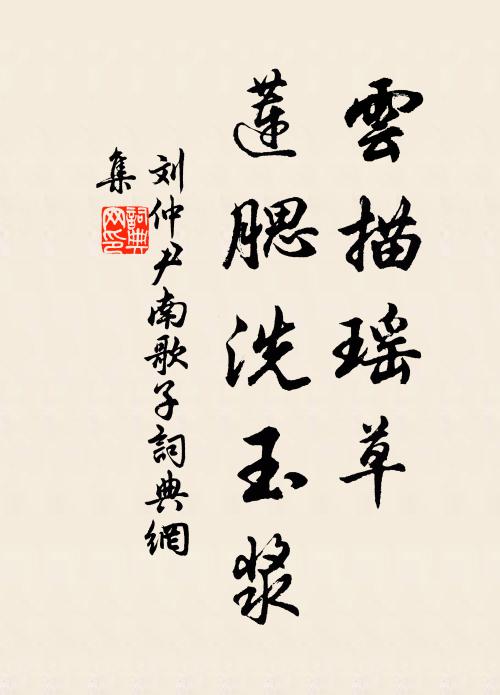 雲描瑶草
蓮腮洗玉漿
刘仲尹南歌子詞典網
集
詞典网印